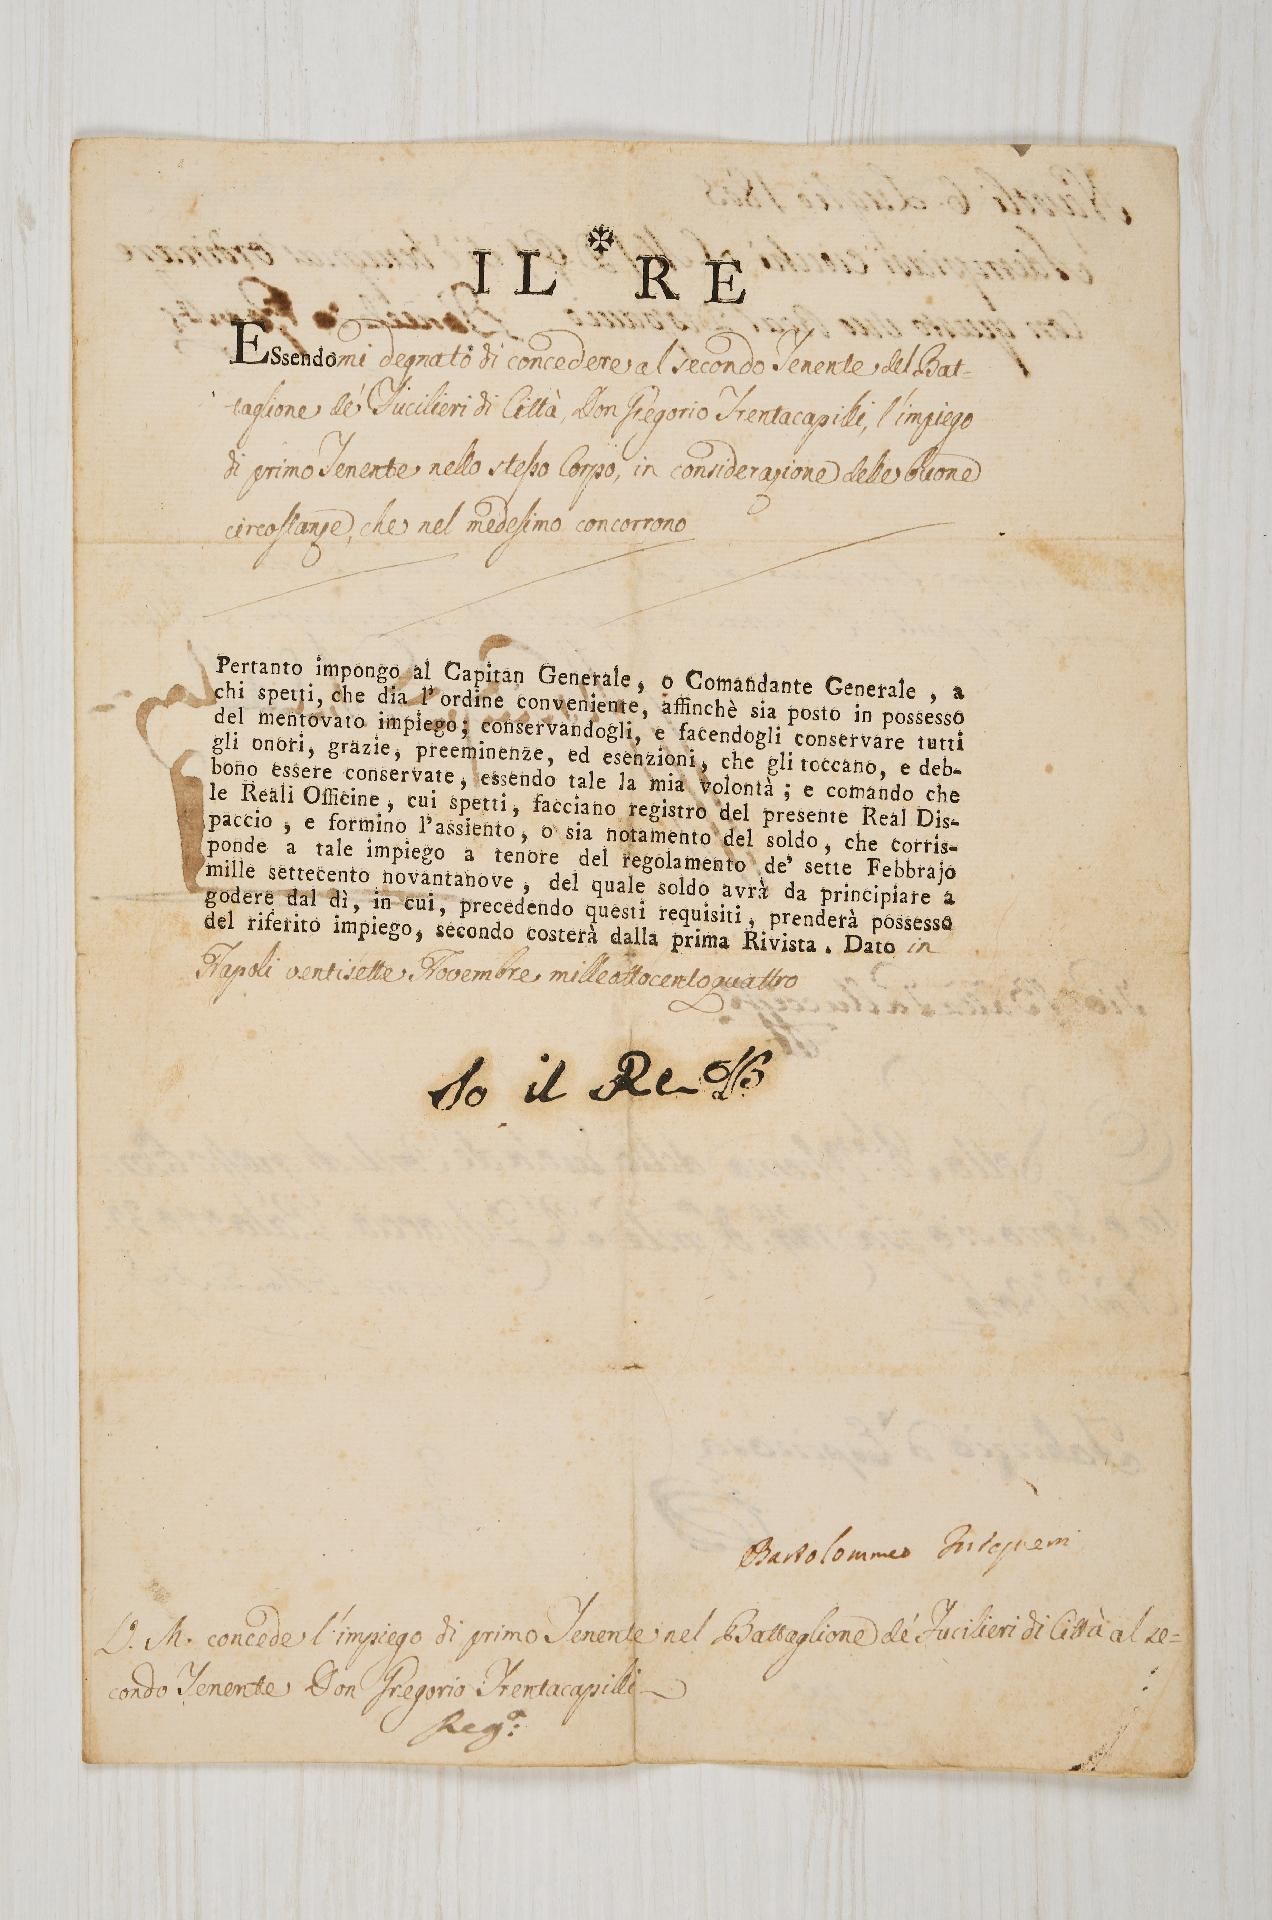 IL RE
ESsendomi degnato di concedere al secondo Tenente del Bat=
taglione de' Fucilieri di Città, Don Gregorio Trentacapilli, l'impiego
di primo Tenente nello stesso Corpo, in considerazione delle buone
circostanze, che nel medesimo concorrono
Pertanto impongo al Capitan Generale, o Comandante Generale, a
chi spetti, che dia l'ordine conveniente, affinchè sia posto in possesso
del mentovato impiego; conservandogli, e facendogli conservare tutti
gli onori, grazie, preeminenze, ed esenzioni, che gli toccano, e deb-
bono essere conservate, essendo tale la mia volontà; e comando che
le Reali Officine, cui spetti, facciano registro del presente Real Dis-
paccio, e formino l'assiento, o sia notamento del soldo, che corris-
ponde a tale impiego a tenore del regolamento de' sette Febbrajo
mille settecento novantanove, del quale soldo avrà da principiare a
godere dal dì, in cui, precedendo questi requisiti, prenderà possesso
del riferito impiego, secondo costerà dalla prima Rivista. Dato in
Napoli ventisette Novembre milleottocentoquattro
Io il Re
Bartolommeo
V. M. concede l'impiego di primo Tenente nel Battaglione de' Fucilieri di Città al se=
condo Tenente Don Gregorio Trentacapilli
Reg.ª: